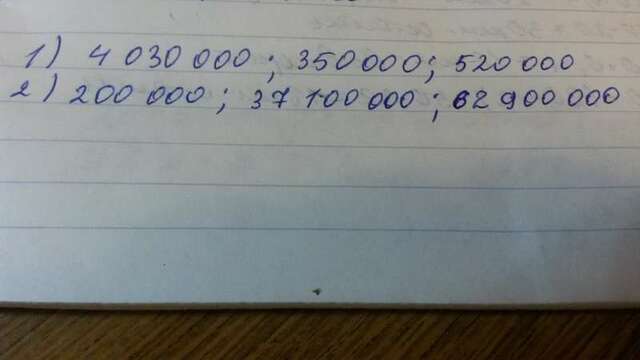 1) 4 030 000 ; 350 000 ; 520 000
2) 200 000 ; 37 100 000 ; 62 900 000